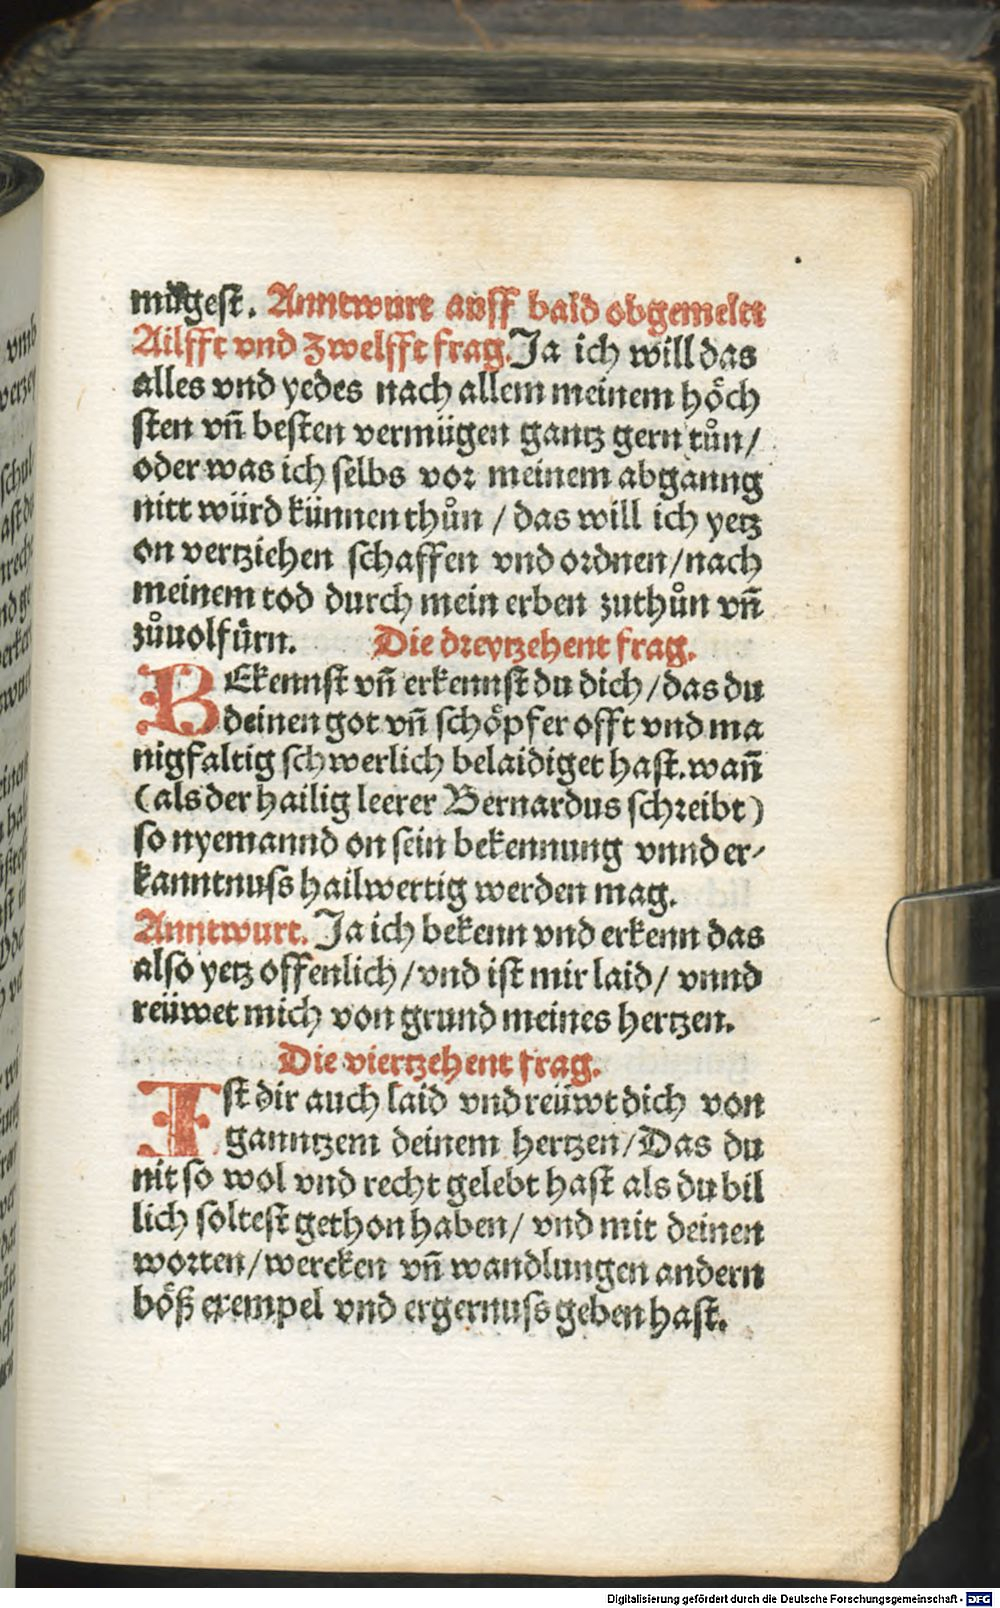 mügest. Anntwurt auff bald obgemelte
Ailfft vnd Zwelfft frag. Ja ich will das
alles vnd yedes nach allem meinem höch
sten vñ besten vermügen gantz gern tůn/
oder was ich selbs vor meinem abganng
nitt würd künnen thůn / das will ich yetz
on vertziehen schaffen vnd ordnen/nach
meinem tod durch mein erben zuthůn vñ
zůuolfürn. Die dreytzehent frag.
BEkennst vñ erkennst du dich/das du
deinen got vñ schöpfer offt vnd ma
nigfaltig schwerlich belaidiget hast.wañ
(als der hailig leerer Bernardus schreibt)
so nyemannd on sein bekennung vnnd er-
kanntnuss hailwertig werden mag.
Anntwurt. Ja ich bekenn vnd erkenn das
also yetz offenlich/vnd ist mir laid/ vnnd
reüwet mich von grund meines hertzen.
Die viertzehent frag.
Ist dir auch laid vnd reüwt dich von
ganntzem deinem hertzen/Das du
nit so wol vnd recht gelebt hast als du bil
lich soltest gethon haben/ vnd mit deinen
worten/wercken vñ wandlungen andern
böß exempel vnd ergernuss geben hast.
Digitalisierung gefördert durch die Deutsche Forschungsgemeinschaft - DFG